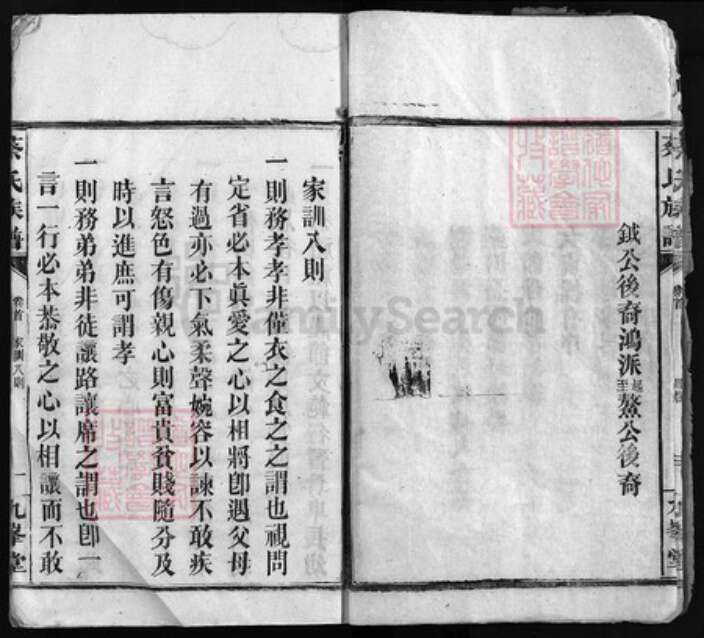 蔡氏族譜
卷首
九峯堂
鉞公後裔鴻派起至鰲公後裔
家訓八則
一則務孝孝非僅衣之食之之謂也視問
定省必本眞愛之心以相將卽遇父母
有過亦必下氣柔聲婉容以諫不敢疾
言怒色有傷親心則富貴貧賤隨分及
時以進庶可謂孝
一則務弟弟非徒讓路讓席之謂也卽一
言一行必本恭敬之心以相讓而不敢
蔡氏族譜
卷首 家訓八則
一
九峯堂
FamilySearch